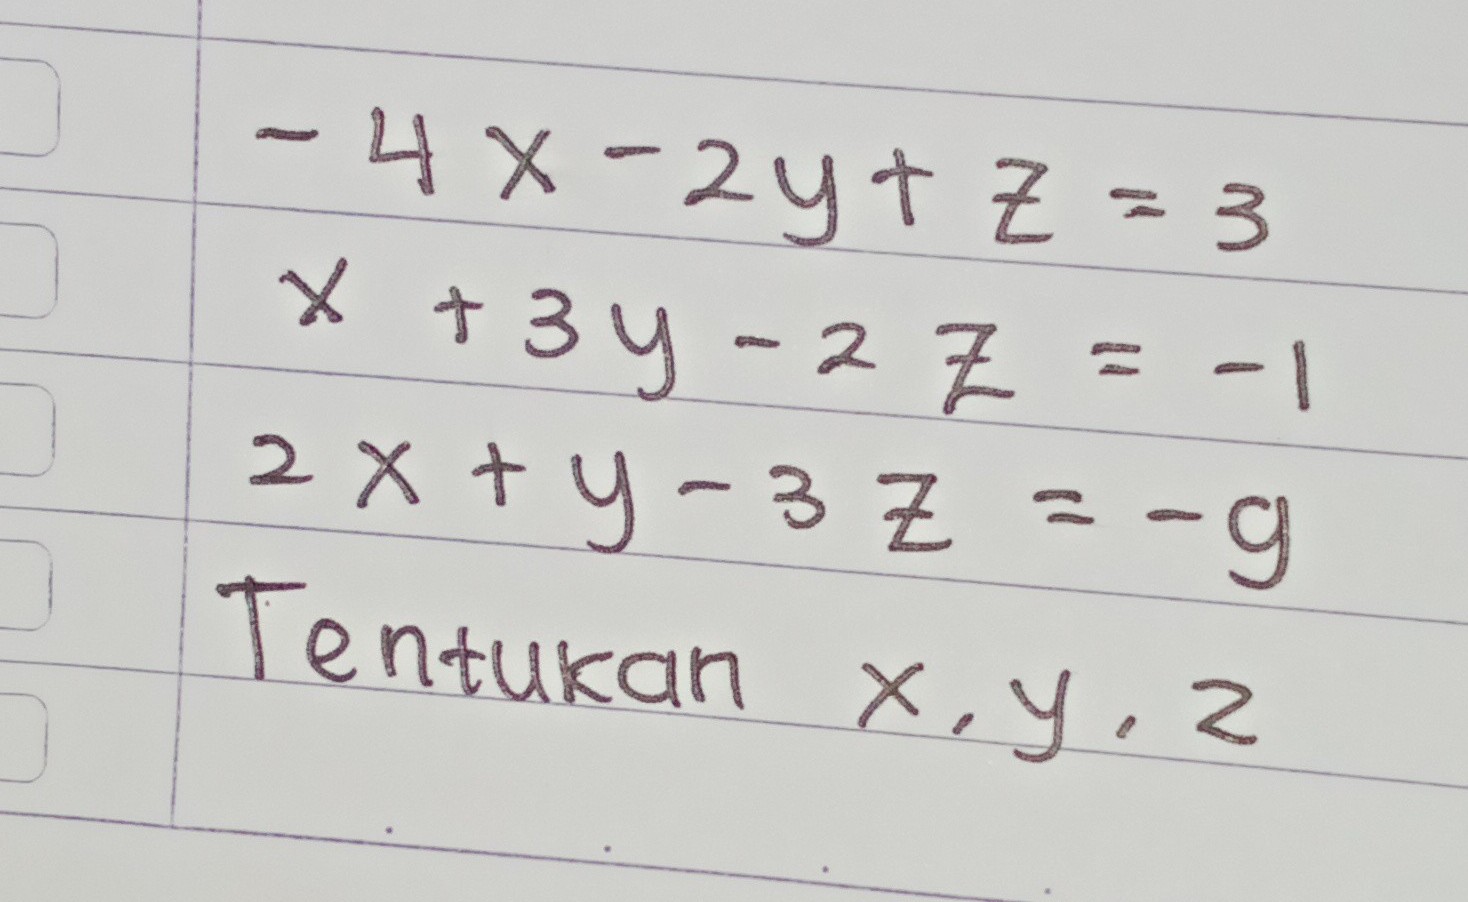 - 4x - 2y + z = 3
x + 3y - 2z = -1
2x + y - 3z = -9
Tentukan x, y, z